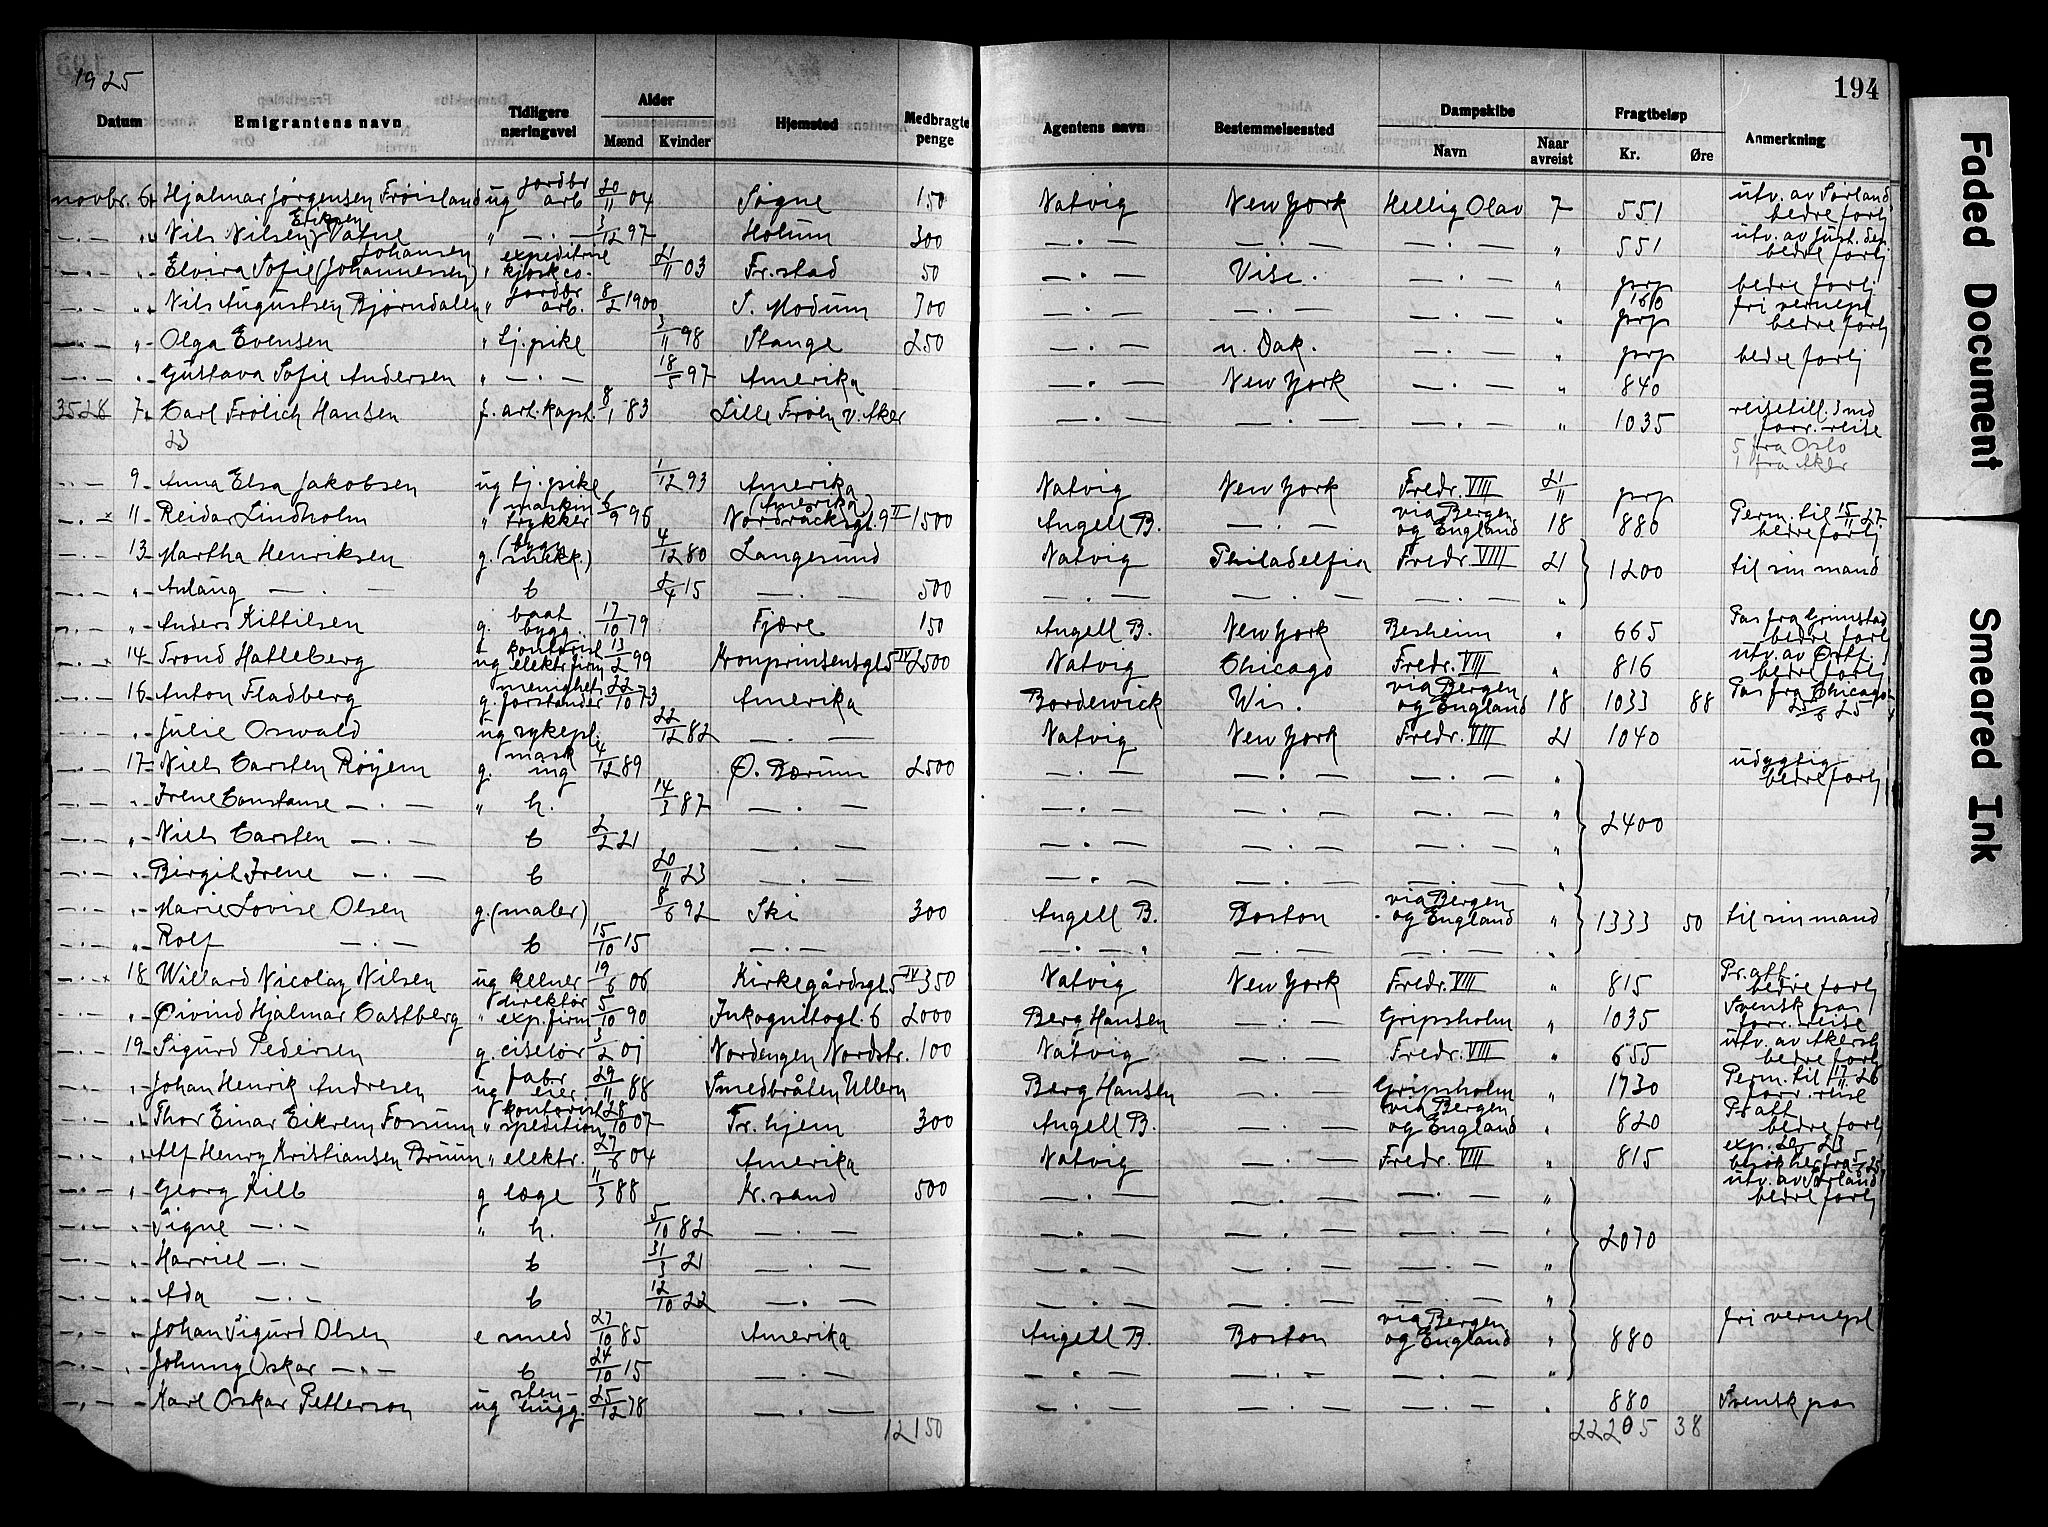 1925
194
Datum Emigrantens navn Tidligere næringsvei Alder Mænd Kvinder Hjemsted Medbragte penge Agentens navn Bestemmelsessted Dampskibe Navn Naar avreist Fragtbeløp Kr. Øre Anmerkning
novbr. 6. Hjalmar Jørgensen Frøisland ug jordbr arb 20/11 04 Søgne 150 Natvig New York Hellig Olav 7 551 utv. av Sørland bedre forlj
—.— „ Nils Nilsen Eiksen Vatne „ —.— 3/12 97 Holum 300 —.— —.— —.— „ 551 utv. av Just. dep. bedre forlj
—.— „ Elvira Sofie (Johannessen) Johansen „ expeditrise kjosk co. 21/11 03 Fr.stad 50 —.— Visc. —.— „ prp bedre forlj
—.— „ Nils Augustsen Bjørndalen „ jordbr arb. 8/2 1900 S. Modum 700 —.— —.— —.— „ 160 prp fri vernepl bedre forlj
—.— „ Olga Evensen „ tj.pike 3/11 98 Stange 250 —.— n. Dak. —.— „ prp bedre forlj
—.— „ Gustava Sofie Andersen „ —.— 18/5 97 Amerika —.— New York —.— „ 840
3528 7. Carl Frølich Hansen f. art. kapt. 8/1 83 Lille Frøen v. Aker —.— —.— —.— „ 1035 reisetill. 3 md forr. reise
23
5 fra Oslo
1 fra Aker
—.— 9 Anna Elsa Jakobsen ug tj.pike 1/12 93 Amerika Natvig New York Fredr. VIII 21/11 prp
—.— x 11 Reidar Lindholm „ maskin trykker 6/9 96 (Amerika) Nordracksgt. 9 II 1500 Angell B. —.— via Bergen og England 18 880 Perm. til 15/11 27 bedre forlj
—.— 13 Martha Henriksen g. (bygn snekk.) 4/12 80 Langesund Natvig Philadelfia Fredr. VIII 21 1200 til sin mand
—.— „ Aslaug —.— b 5/4 15 —.— 500 —.— —.— —.— „
—.— „ Anders Kittilsen g. baat bygg. 17/10 79 Fjære 150 Angell B. New York Besheim „ 665 Pas fra Grimstad bedre forlj
—.— 14 Trond Hatleberg ug kontorist elektr.firm 13/2 99 Kronprinsensgt. 5 IV 2500 Natvig Chicago Fredr. VIII „ 816 utv. av Østf. bedre forlj
—.— 16 Anton Fladberg g. menighets forstander 22/10 73 Amerika Bordewick Wis. via Bergen og England 18 1033 88 Pas fra Chicago 25/6 25
—.— „ Julie Oswald ug sykepl. 22/12 82 —.— Natvig New York Fredr. VIII 21 1040
—.— 17 Niels Carsten Røyem g. mask ing 4/12 89 Ø. Bærum 2500 —.— —.— —.— „ udygtig bedre forlj
—.— „ Irene Constanse —.— „ h. 14/3 87 —.— —.— —.— —.— „ 2400
—.— „ Niels Carsten —.— b 2/2 21 —.— —.— —.— —.— „
—.— „ Birgit Irene —.— b 20/11 23 —.— —.— —.— „
—.— „ Marie Lovise Olsen g. (maler) 8/6 92 Ski 300 Angell B. Boston via Bergen og England „ 1333 50 til sin mand
—.— „ Rolf —.— b 15/10 15 —.— —.— —.— —.— „
—.— x 18 Willard Nicolay Nilsen ug kelner 19/6 06 Kirkegårdsgt. 5 IV 350 Natvig New York Fredr. VIII „ 815 Pr. att. bedre forlj
—.— „ Øivind Hjalmar Castberg „ direktør exp.firm 5/10 90 Inkognitogt. 6 2000 Berg Hansen —.— Gripsholm „ 1035 Svensk pas forr. reise
—.— 19 Sigurd Pedersen g. ciselør 3/2 01 Nordengen Nordstr. 100 Natvig —.— Fredr. VIII „ 655 utv. av Akersh bedre forlj
—.— „ Johan Henrik Andresen ug fabr eier 29/11 88 Smedbråten Ullern Berg Hansen —.— Gripsholm „ 1730 Perm. til 17/11 26 forr. reise
—.— „ Thor Einar Eikrem Fossum „ kontorist spedition 28/10 07 Tr.hjem 300 Angell B. —.— via Bergen og England „ 820 Pr att bedre forlj
—.— „ Alf Henry Kristiansen Bruun „ elektr. 27/6 04 Amerika Natvig —.— Fredr. VIII „ 815 exp. 20/4 23 besøk her fra 5/6 25
—.— „ Georg Kilb g læge 11/3 88 Kr.sand 500 —.— —.— —.— „ utv. av Sørland bedre forlj
—.— „ Signe —.— „ h. 5/10 82 —.— —.— —.— —.— „ 2070
—.— „ Harriet —.— b 31/3 21 —.— —.— —.— —.— „
—.— „ Ada —.— b 12/10 22 —.— —.— —.— —.— „
—.— „ Johan Sigurd Olsen e smed 27/10 85 Amerika Angell B. Boston via Bergen og England „ 880 fri vernepl
—.— „ Johnny Oskar —„— b 24/10 15 —.— —.— —.— —.— „
—.— „ Karl Oskar Petterson ug sten-hugg. 25/12 78 —.— —.— —.— —.— „ 880 Svensk pas
12150 22205 38
Faded Document
Smeared Ink